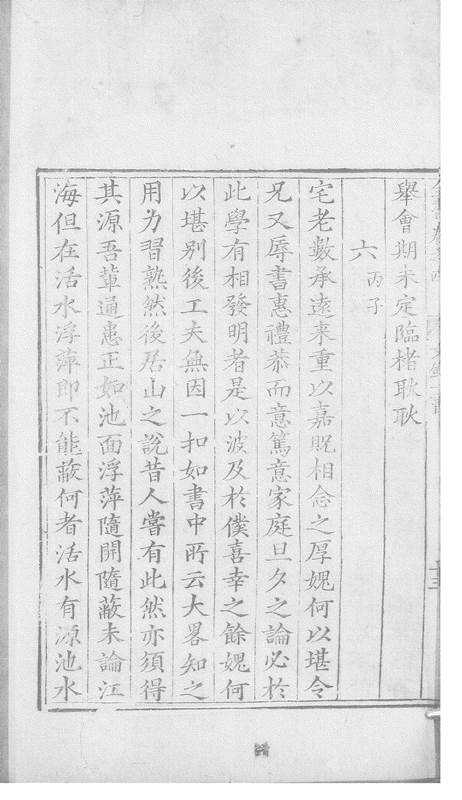 舉會期未定臨楮耿耿
六丙子
宅老數承遠来重以嘉貺相念之厚媿何以堪令
兄又辱書惠禮恭而意篤意家庭旦夕之論必於
此學有相發明者是以波及於僕喜幸之餘媿何
以堪别後工夫無因一扣如書中所云大畧知之
用为習熟然後居山之說昔人嘗有此然亦須得
其源吾輩通患正如池面浮萍隨開隨蔽未論江
海但在活水浮萍即不能蔽何者活水有源池水